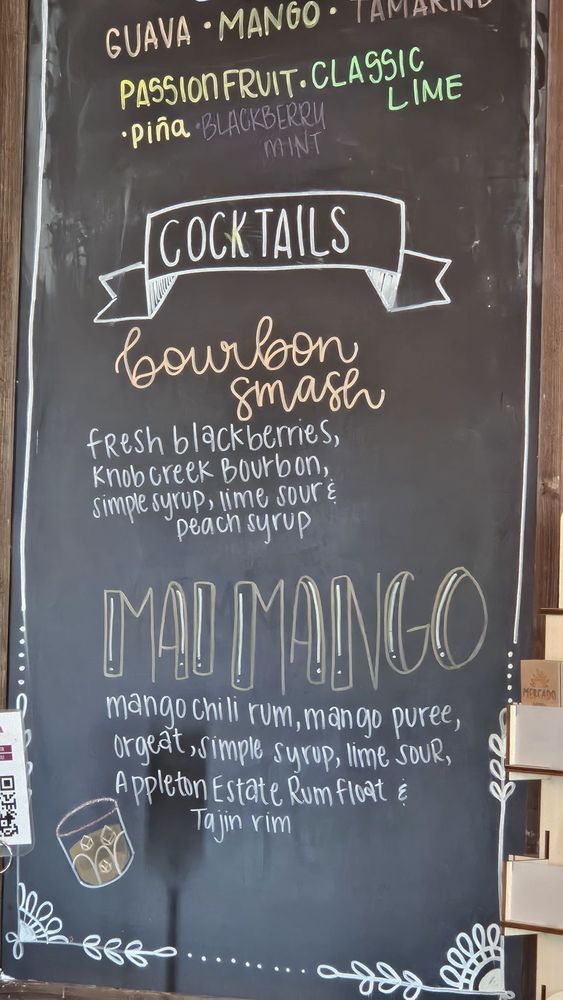 GUAVA · MANGO · TAMARIND
PASSIONFRUIT · CLASSIC
LIME
· Piña · BLACKBERRY
MINT
COCKTAILS
bourbon
smash
fresh blackberries,
Knob creek Bourbon,
simple syrup, lime sour &
peach syrup
MAI MANGO
mango chili rum, mango puree,
orgeat, simple syrup, lime sour,
Appleton Estate Rum float &
Tajin rim
MERCADO